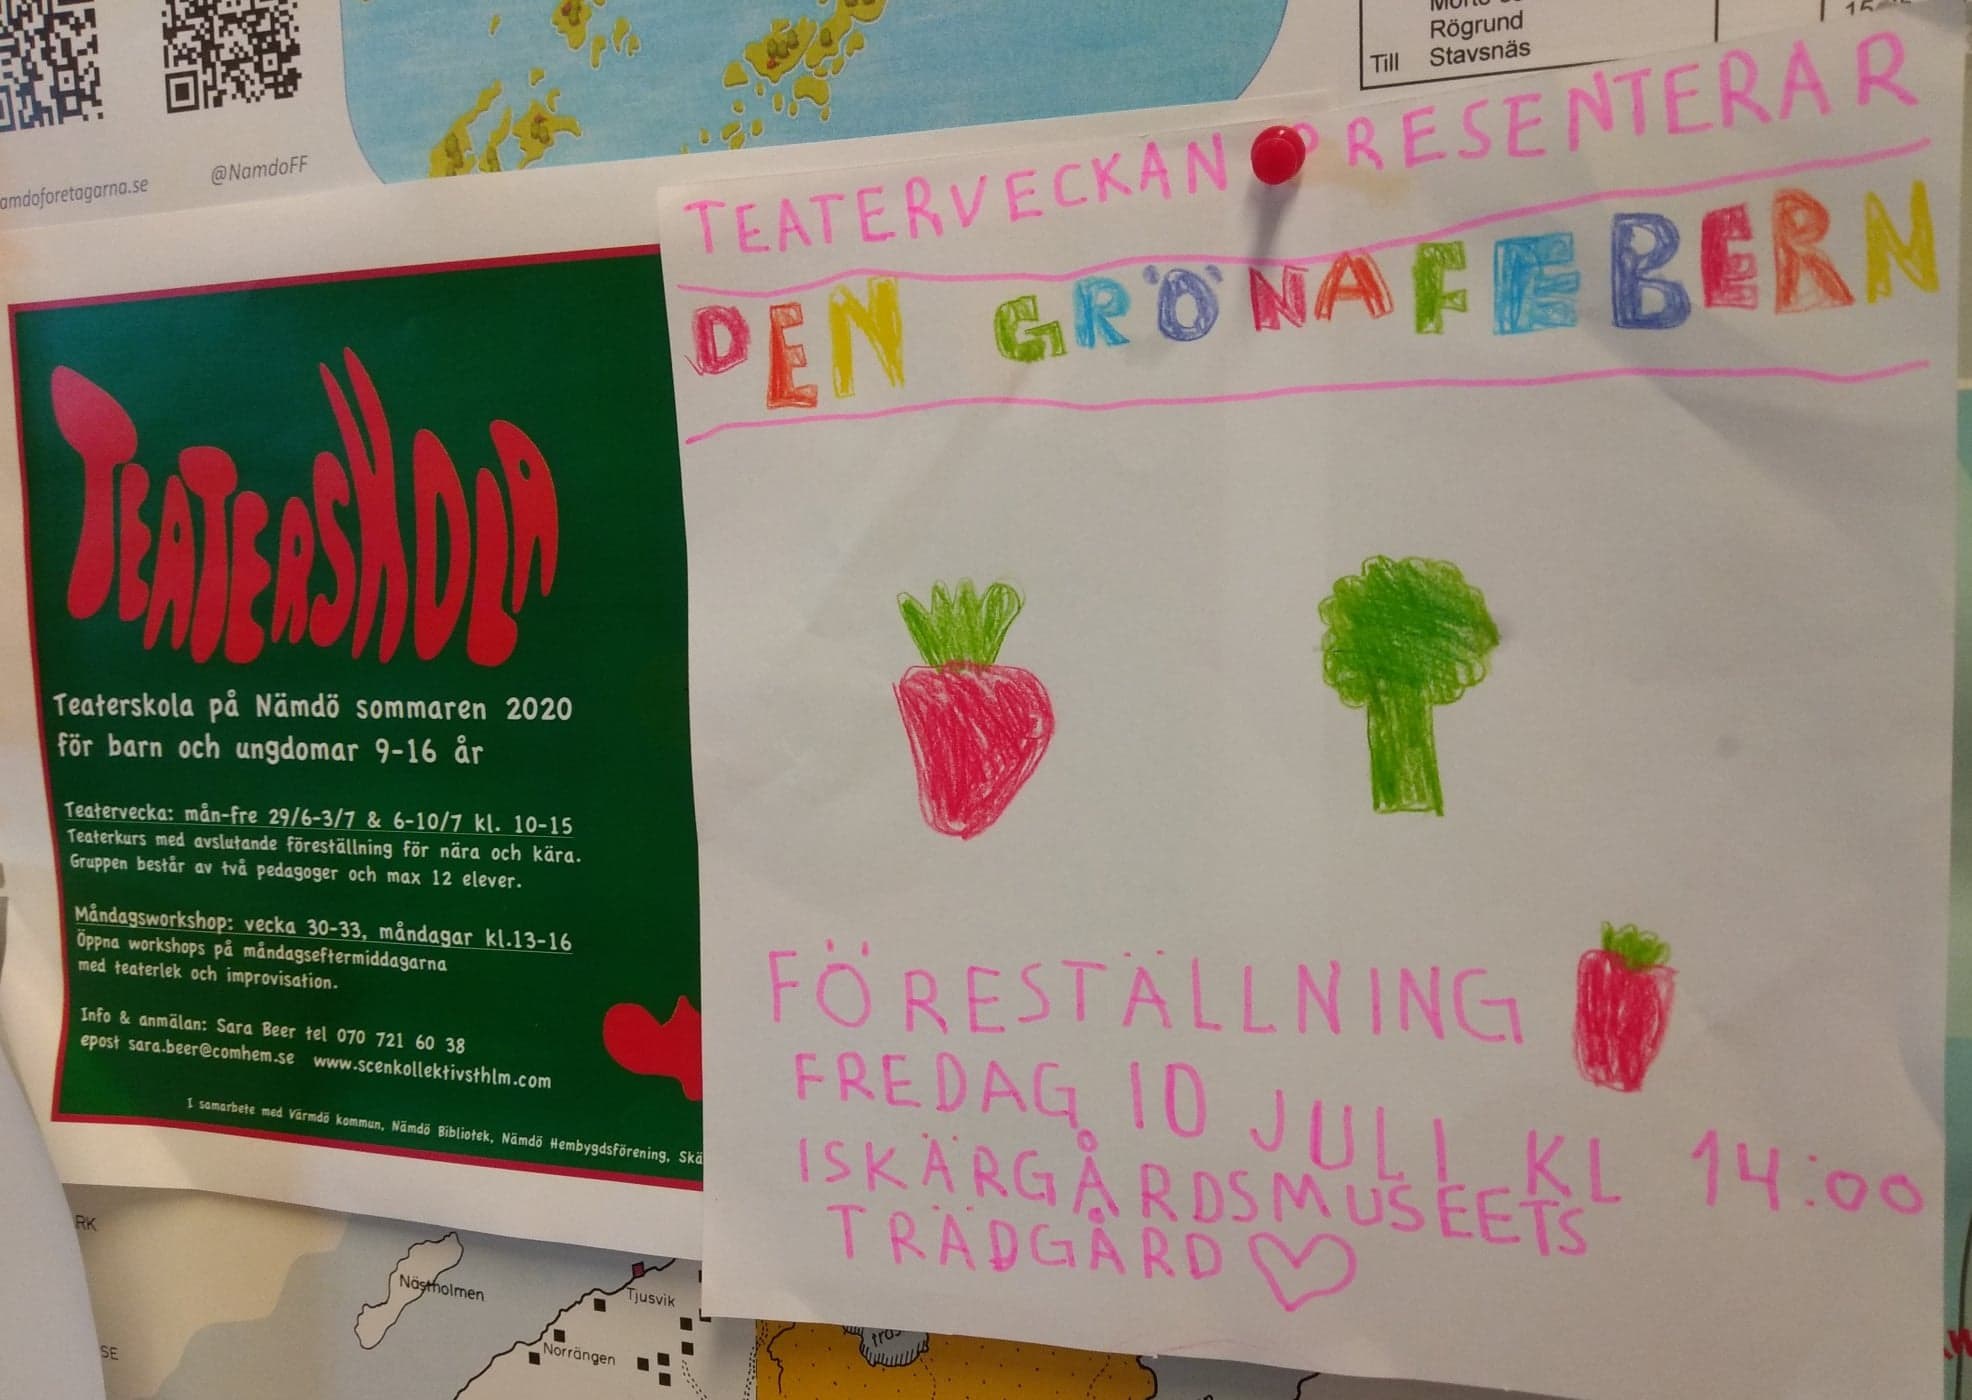 @NamdoFF
amdoforetagarna.se
Rögrund
Till Stavsnäs
TEATERSKOLA
Teaterskola på Nämdö sommaren 2020
för barn och ungdomar 9-16 år
Teatervecka: mån-fre 29/6-3/7 & 6-10/7 kl. 10-15
Teaterkurs med avslutande föreställning för nära och kära.
Gruppen består av två pedagoger och max 12 elever.
Måndagsworkshop: vecka 30-33, måndagar kl.13-16
Öppna workshops på måndagseftermiddagarna
med teaterlek och improvisation.
Info & anmälan: Sara Beer tel 070 721 60 38
epost sara.beer@comhem.se www.scenkollektivsthlm.com
I samarbete med Värmdö kommun, Nämdö Bibliotek, Nämdö Hembygdsförening, Skä
TEATERVECKAN PRESENTERAR
DEN GRÖNA FEBERN
FÖRESTÄLLNING
FREDAG 10 JULI KL 14:00
I SKÄRGÅRDSMUSEETS
TRÄDGÅRD
RK
SE
Nästholmen
Tjusvik
Norrängen